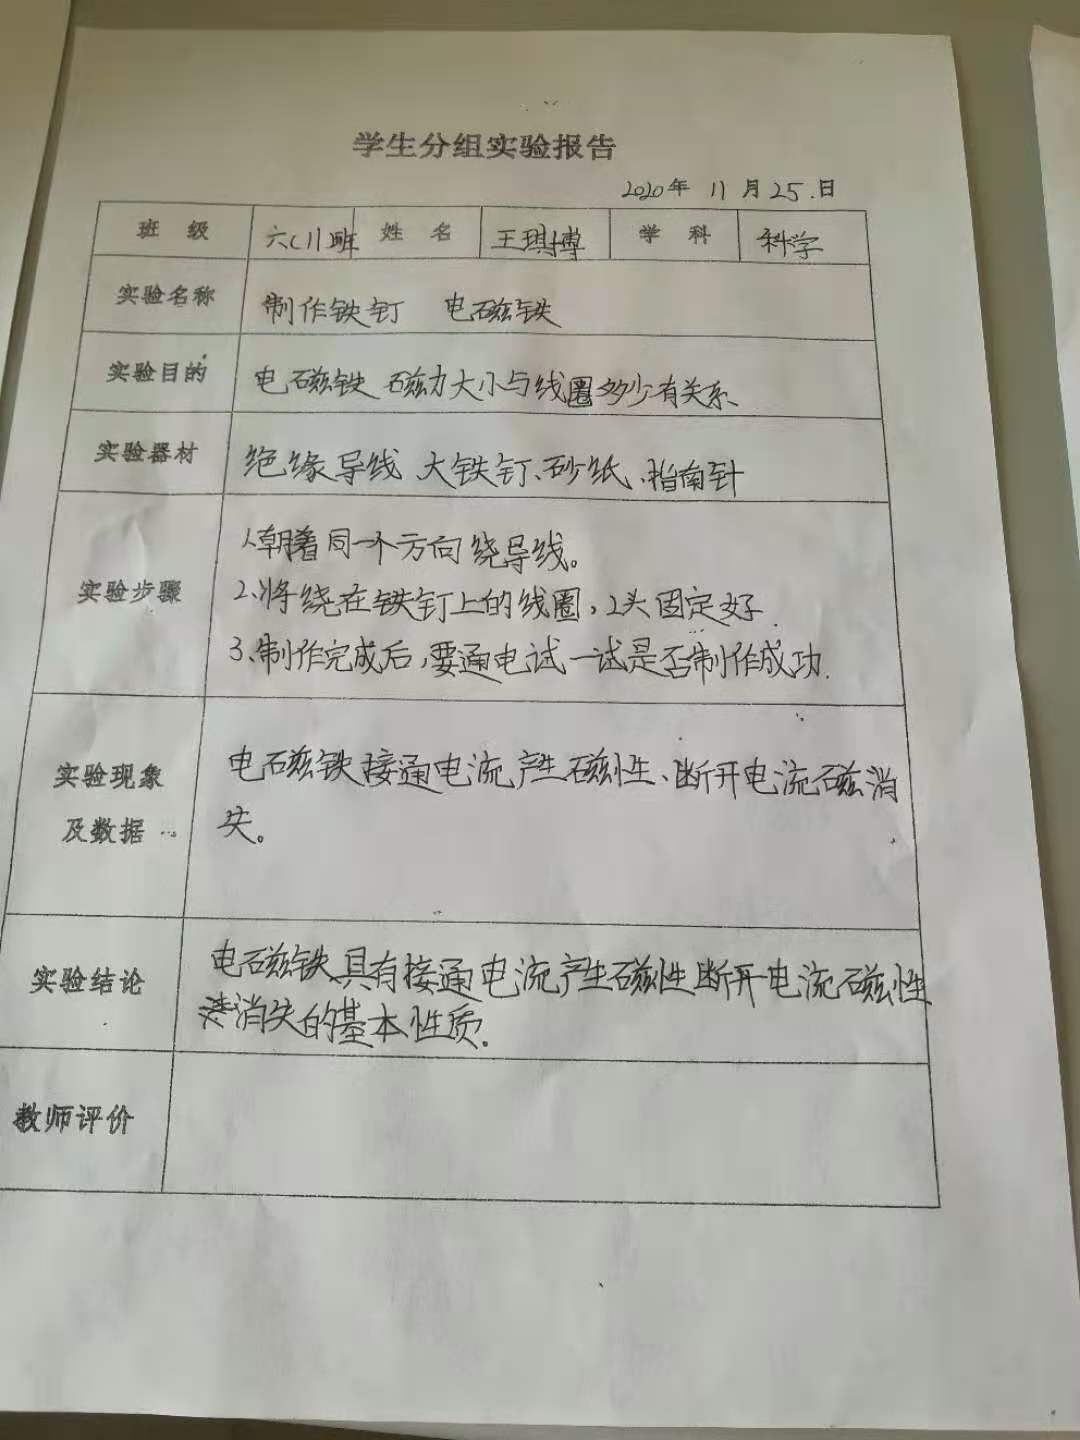 学生分组实验报告
2020年 11月25.日
班 级 六(1)班 姓 名 王琪博 学 科 科学
实验名称 制作铁钉 电磁铁
实验目的 电磁铁 磁力大小与线圈多少有关系、
实验器材 绝缘导线 大铁钉、砂纸、指南针
1、朝着同一个方向绕导线。
实验步骤 2、将绕在铁钉上的线圈,2头固定好.
3、制作完成后,要通电试一试是否制作成功.
实验现象 电磁铁接通电流产生磁性、断开电流磁消
及数据 失。
实验结论 电磁铁具有接通电流产生磁性断开电流磁性
消失的基本性质.
教师评价